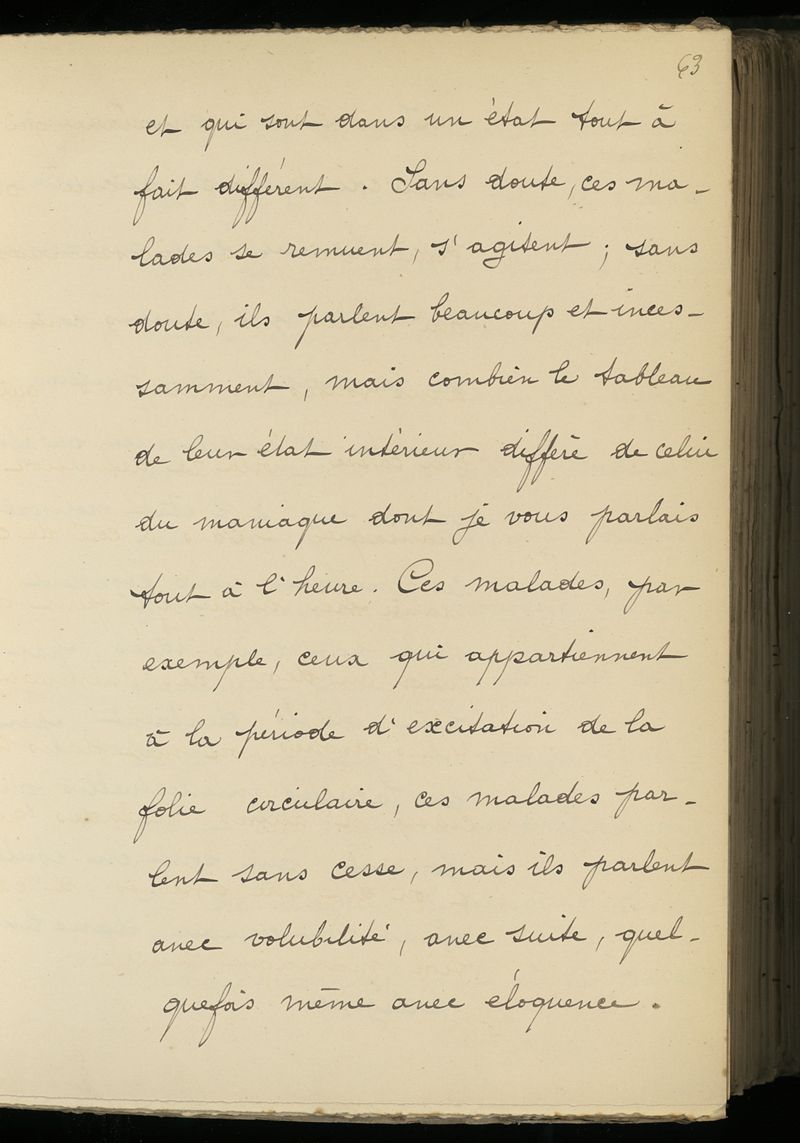 63
et qui sont dans un état tout à
fait différent. Sans doute, ces ma-
lades se remuent, s'agitent ; sans
doute, ils parlent beaucoup et inces-
samment, mais combien le tableau
de leur état intérieur diffère de celui
du maniaque dont je vous parlais
tout à l'heure. Ces malades, par
exemple, ceux qui appartiennent
à la période d'excitation de la
folie circulaire, ces malades par-
lent sans cesse, mais ils parlent
avec volubilité, avec suite, quel-
quefois même avec éloquence.